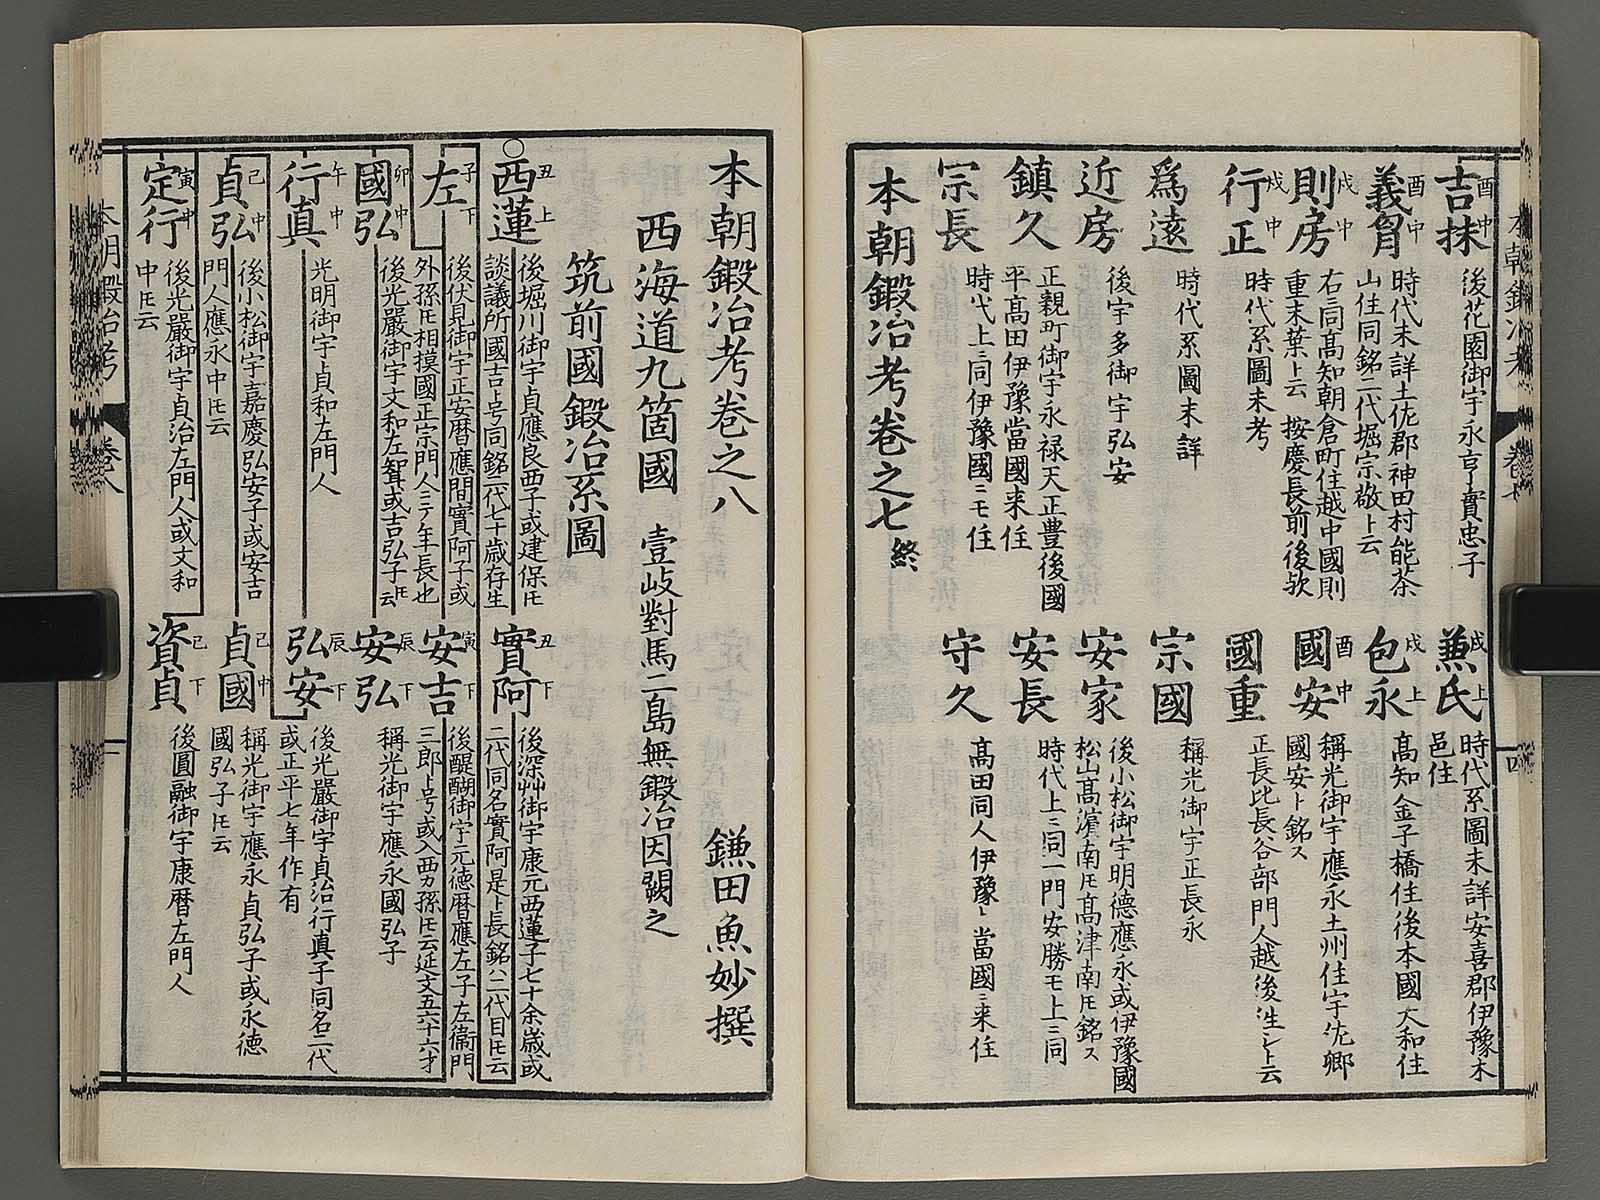 吉抹 酉中 後花園御宇永亨實忠子
兼氏 戌上 時代系圖未詳安喜郡伊豫木
邑住
義肎 酉中 時代未詳土佐郡神田村能茶
山住同銘二代堀宗敬ト云
包永 戌上 高知金子橋住後本國大和住
則房 戌中 右同高知朝倉町住越中國則
重末葉ト云 按慶長前後欤
國安 酉中 稱光御宇應永土州住宇佐鄉
國安ト銘ス
行正 戌中 時代系圖未考
國重 正長比長谷部門人越後住ト云
爲遠 時代系圖未詳
宗國 稱光御宇正長永
近房 後宇多御宇弘安
安家 後小松御宇明德應永或伊豫國
松山高濵南㐂高津南㐂銘ス
鎮久 正親町御宇永禄天正豊後國
平高田伊豫當國来住
安長 時代上ニ同一門安勝モ上ニ同
宗長 時代上ニ同伊豫國ニモ住
守久 高田同人伊豫ト當國ニ来住
本朝鍛冶考卷之七 終
本朝鍛冶考 卷七 十四
本朝鍛冶考卷之八
鎌田魚妙撰
西海道九箇國 壹岐對馬二島無鍛冶因闕之
筑前國鍛冶系圖
西蓮 丑上 後堀川御宇貞應良西子或建保㐂
談議所國吉ト号同銘二代七十歳存生
實阿 丑下 後深艸御宇康元西蓮子七十余歳或
二代同名實阿是ト長銘ハ二代目㐂云
左 子下 後伏見御宇正安暦應間實阿子或
外孫㐂相摸國正宗門人三ケ年長也
安吉 寅下 後醍醐御宇元德暦應左子左衞門
三郎ト号或入西カ孫㐂云延文五六十六才
國弘 卯中 後光嚴御宇文和左聟或吉弘子㐂云
安弘 辰下 稱光御宇應永國弘子
行真 午中 光明御宇貞和左門人
弘安 辰下 後光嚴御宇貞治行真子同名二代
或正平七年作有
貞弘 己中 後小松御宇嘉慶弘安子或安吉
門人應永中㐂云
貞國 己中 稱光御宇應永貞弘子或永德
國弘子㐂云
定行 寅中 後光嚴御宇貞治左門人或文和
中㐂云
資貞 己下 後圓融御宇康暦左門人
本朝鍛冶考 卷八 一